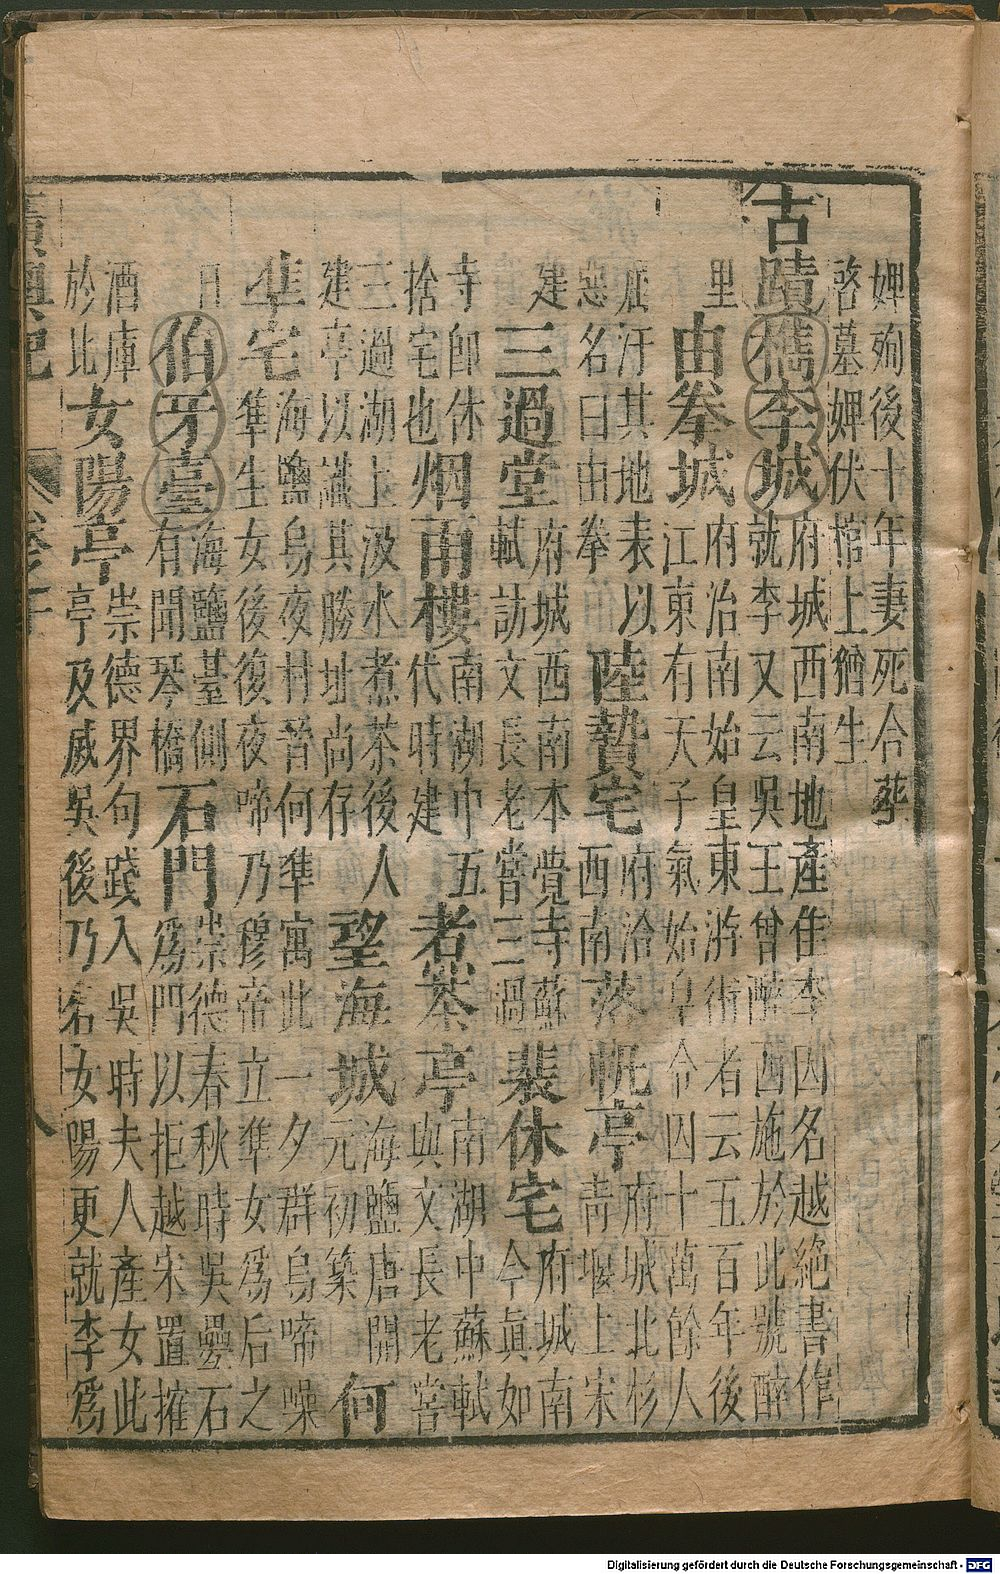 婢殉後十年妻死合葬
啓墓婢伏棺上猶生
古蹟檇李城府城西南地產佳李因名越絕書作
就李又云吳王曾醉西施於此號醉
里由拳城府治南始皇東游術者云五百年後
江東有天子氣始皇令囚十萬餘人
㞐汙其地表以
惡名曰由拳陸贄宅府治
西南落帆亭府城北杉
青堰上宋
建三過堂府城西南本覺寺蘇
軾訪文長老嘗三過裴休宅府城南
今真如
寺卽休
捨宅也烟雨樓南湖中五
代時建煮茶亭南湖中蘇軾
與文長老嘗
三過湖上汲水煮茶後人
建亭以識其勝址尚存望海城海鹽唐開
元初築何
隼宅海鹽烏夜村晉何準寓此一夕群烏啼噪
隼生女後復夜啼乃穆帝立準女為后之
日伯牙臺海鹽臺側
有聞琴橋石門崇德春秋時吳壘石
為門以拒越宋置㩁
酒庫
於此女陽亭崇德界句踐入吳時夫人產女此
亭及滅吳後乃名女陽更就李爲
Digitalisierung gefördert durch die Deutsche Forschungsgemeinschaft - DFG